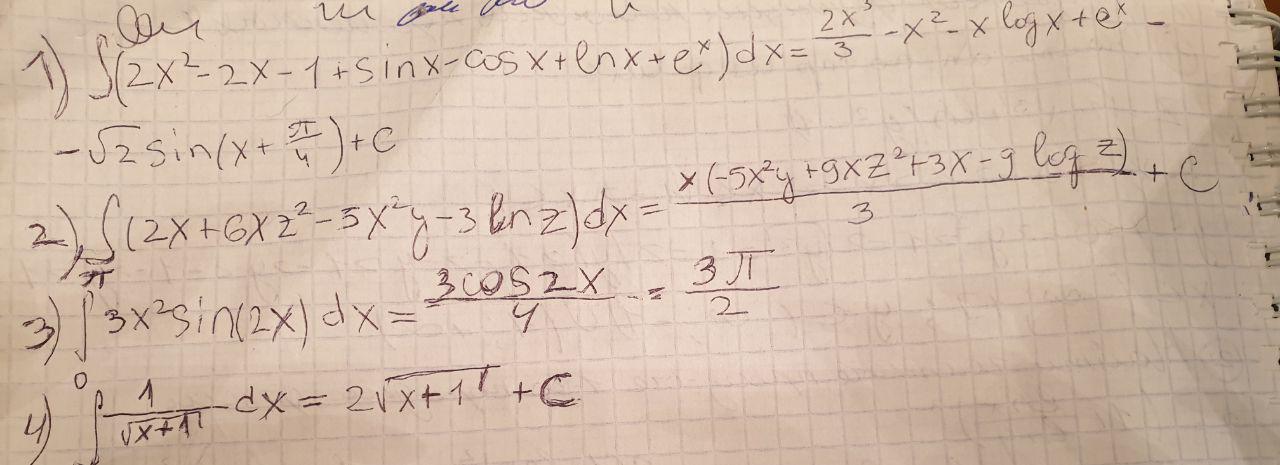 1) ∫(2x²-2x-1+sinx-cosx+lnx+eˣ)dx= 2x³/3 -x²-x logx+eˣ -
-√2sin(x+π/4)+C
2) ∫(2x+6xz²-5x²y-3lnz)dx= x(-5x²y+9xz²+3x-9 log z)/3 + C
3) ∫₀^π 3x²sin(2x) dx= 3cos2x/4 -= 3π/2
4) ∫ 1/√x+1 dx = 2√x+1 +C